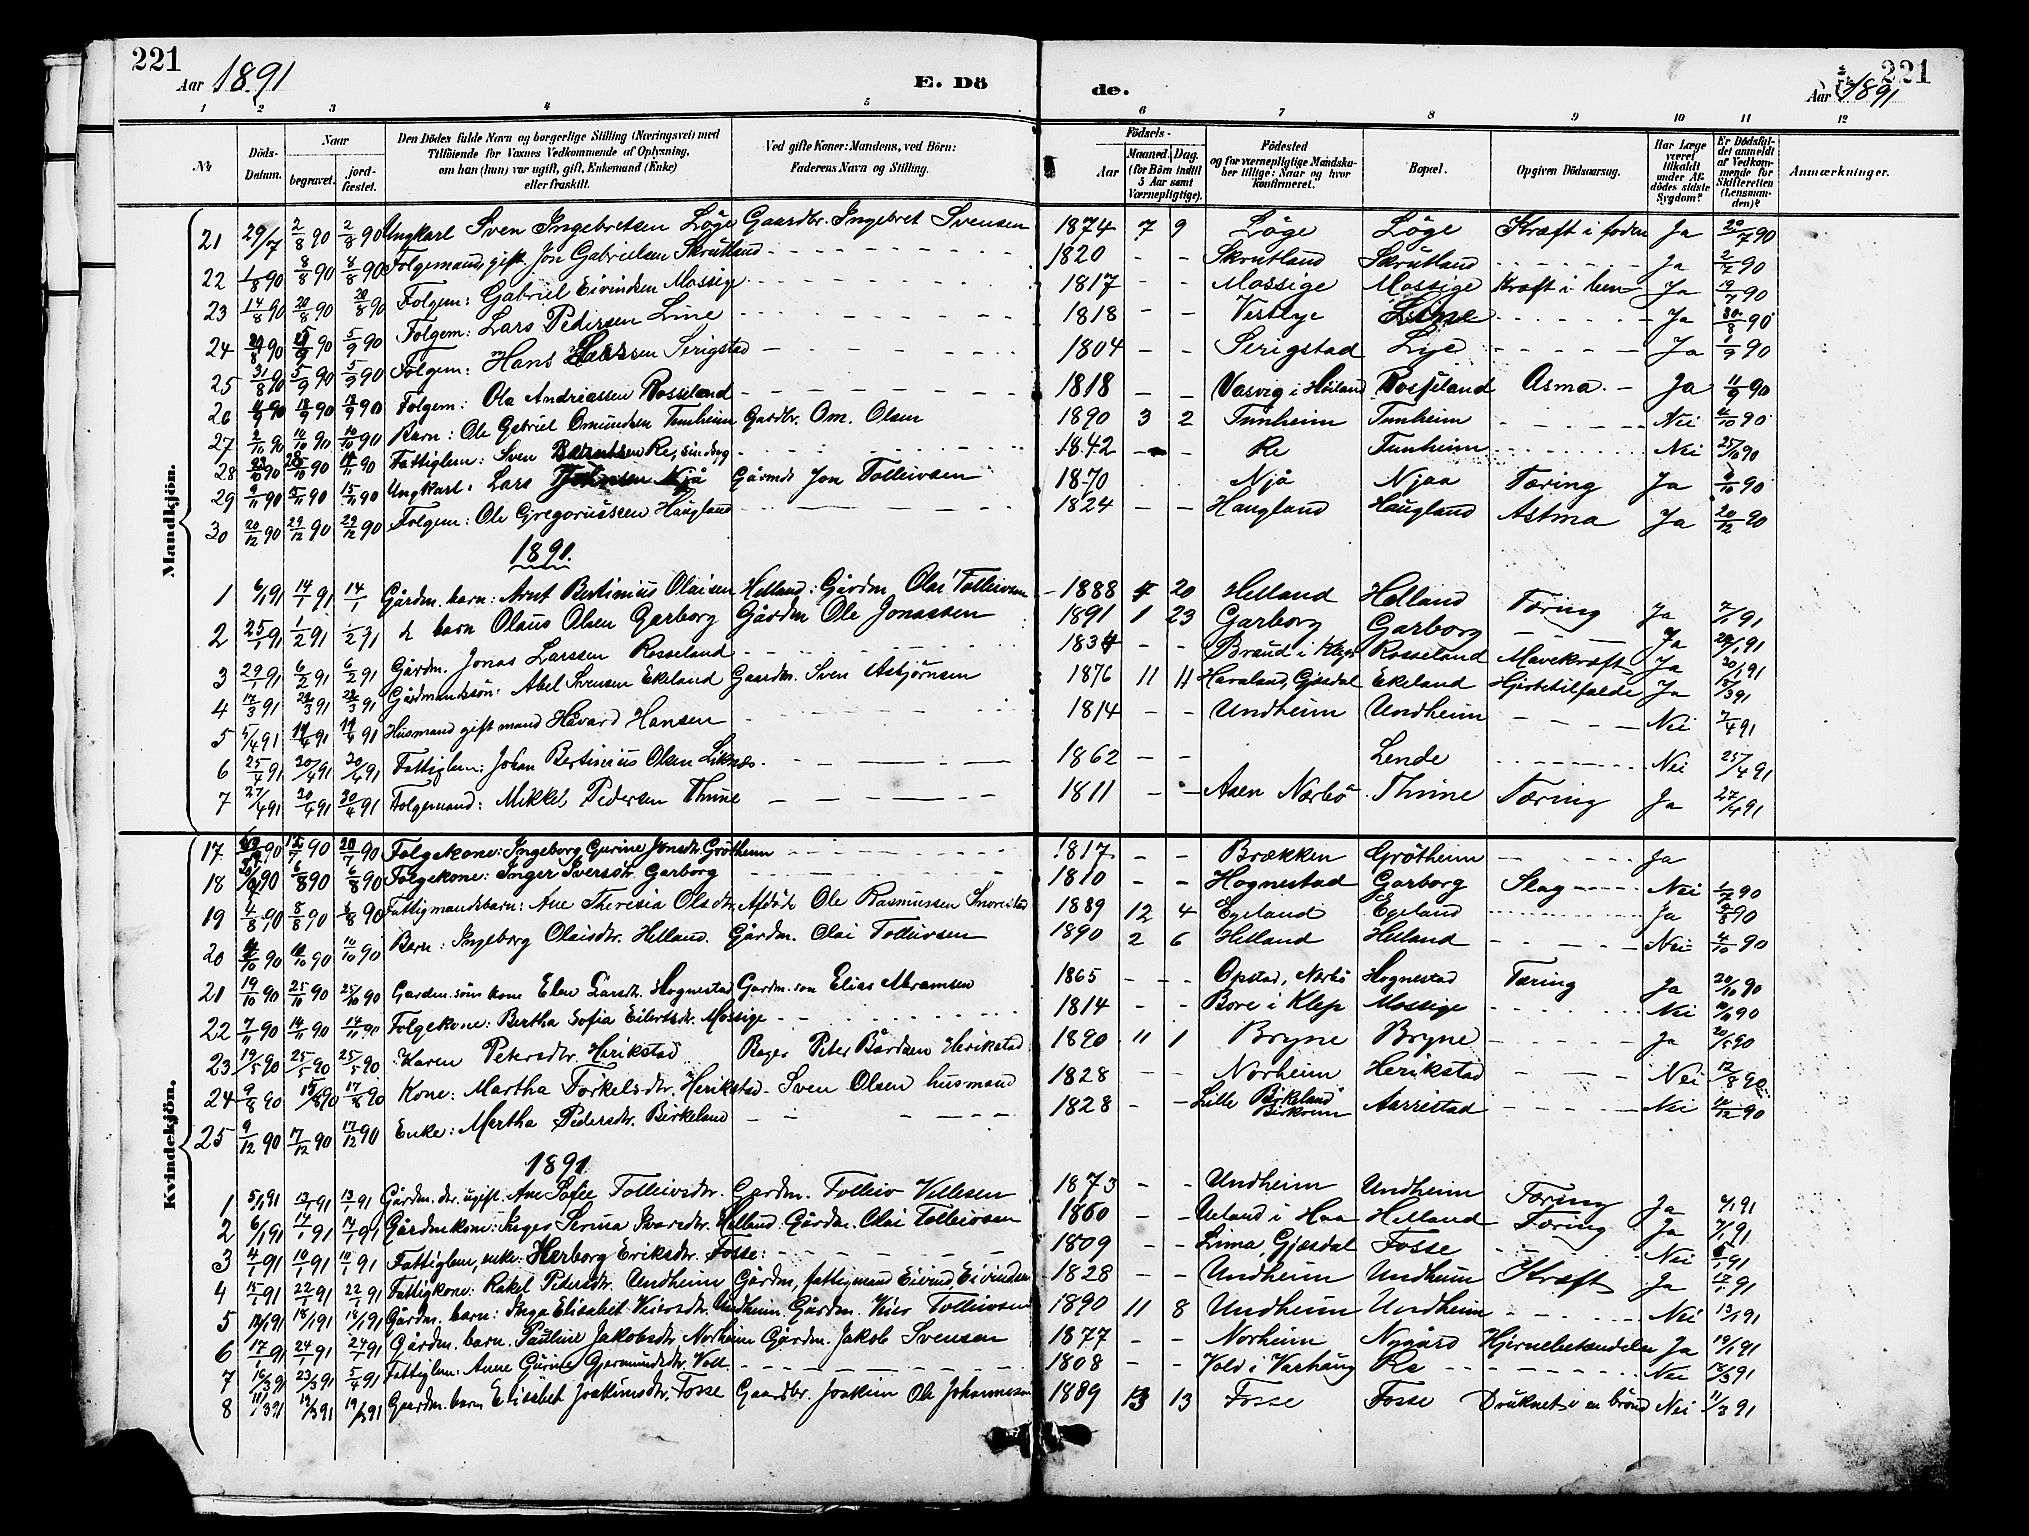 221
Aar 1891
E. Dö
de.
221
Aar 1891
1 2 3 4 5 6 7 8 9 10 11 12
№
Döds-Datum.
Naar
begravet.
jord-fæstet.
Den Dödes fulde Navn og borgerlige Stilling (Næringsvei) med Tilföiende for Voxnes Vedkommende af Oplysning, om han (hun) var ugift, gift, Enkemand (Enke) eller fraskilt.
Ved gifte Koner: Mandens, ved Börn: Faderens Navn og Stilling.
Födsels-
Aar
Maaned. Dag. (for Börn indtil 5 Aar samt Værnepligtige).
Födested og for værnepligtige Mandskaber tillige: Naar og hvor konfirmeret.
Bopæl.
Opgiven Dödsaarsag.
Har Læge været tilkaldt under Afdödes sidste Sygdom?
Er Dödsfaldet anmeldt af Vedkommende for Skifteretten (Lensmanden)?
Anmærkninger.
Mandkjön.
21 29/7 2/8 90 2/8 90 Ungkarl Sven Ingebretsen Löge Gaardbr. Ingebret Svensen 1874 7 9 Löge Löge Kræft i foden Ja 29/7 90
22 1/8 90 8/8 90 8/8 90 Folgemand, gift Jon Gabrielsen Skrutland 1820 - - Skrutland Skrutland Ja 2/7 90
23 14/8 90 20/8 90 20/8 90 Folgem: Gabriel Eivindsen Mossige 1817 - - Mossige Mossige Kræft i Ja 19/7 90
24 90 90 5/9 90 Folgem: Lars Pedersen Line 1818 - - Vestlye Line Ja 30/8 90
25 31/8 90 5/9 90 5/9 90 Folgem: Hans Serigstad 1804 - - Serigstad Lye Ja 1/9 90
26 90 18/9 90 18/9 90 Folgem: Ola Andreassen Rosseland 1818 - - Vasvig i Höiland Rosseland Asma Ja 11/9 90
27 2/10 90 10/10 90 10/10 90 Barn: Ole Gabriel Omundsen Tunheim Gardbr. Om. Olsen 1890 3 2 Tunheim Tunheim Nei 4/10 90
28 90 90 90 Fattiglem: Sven Re, 1842 - - Re Tunheim Nei 25/10 90
29 90 90 15/11 90 Ungkarl: Lars Njå Gårmd Jon Tolleivsen 1870 Njå Njaa Tæring Ja 90
30 20/12 90 29/12 90 29/12 90 Folgem: Ole Gregoriussen Haugland 1824 - - Haugland Haugland Astma Ja 20/12 90
1891.
1 6/1 91 14/1 91 14/1 Gårdm. barn: Arnt Bertinius Olaisen Helland: Gårdm Olai Tolleivsen 1888 4 20 Helland Helland Tæring Ja 7/1 91
2 25/1 91 1/2 91 1/2 91 barn Olaus Olsen Garborg Gårdm Ole Jonassen 1891 1 23 Garborg Garborg Ja 29/1 91
3 29/1 91 6/2 91 6/2 91 Gårdm. Jonas Larssen Rosseland 1834 - - Braud i Klep Rosseland Mavekræft Ja 30/1 91
4 17/3 91 23/3 91 23/3 91 Gårdmandssön: Abel Svensen Ekeland Gaardm. Sven Asbjörnsen 1876 11 11 Haraland, Gjesdal Ekeland Hjertetilfælde Ja 18/3 91
5 5/4 91 14/4 91 14/4 91 Husmand gift mand Håvard Hansen 1814 - - Undheim Undheim Nei 7/4 91
6 25/4 91 30/4 91 30/4 91 Fattiglem: Johan Bertinius Olsen Liknes 1862 - - Lende Nei 25/4 91
7 27/4 91 30/4 91 30/4 91 Folgemand: Mikkel Pedersen Thime 1811 - - Aasen Nærbö Thime Tæring Ja 27/4 91
Kvindekjön.
17 90 90 20/7 90 Folgekone: Ingeborg Gurine Jönsdtr Grötheim 1817 - - Brækken Grötheim Ja
18 90 6/8 90 6/8 90 Folgekone: Inger Iversdtr. Garborg 1810 - - Hognestad Garborg Slag Nei 1/7 90
19 4/8 90 8/8 90 8/8 90 Fattigmandsbarn: Ane Theresia Olsdtr. Afdöde Ole Rasmussen Snorestad 1889 12 4 Egeland Egeland Ja 8/8 90
20 90 90 10/10 90 Barn: Ingeborg Olaisdtr. Helland. Gårdm. Olai Tolleivsen 1890 2 6 Helland Helland Nei 4/10 90
21 19/10 90 25/10 90 25/10 90 Gardm. söns kone Elen Larsdtr. Hognestad Gardm. son Elias Abramsen 1865 - - Opstad, Nærbö Hognestad Tæring Ja 20/10 90
22 7/11 90 14/11 90 14/11 90 Folgekone: Bertha Sofia Eilertsdtr. Mossige 1814 - - Bore i Klep Mossige Nei 10/11 90
23 19/5 90 25/5 90 25/5 90 Karen Petersdtr. Herikstad Bager Peter Bårdsen Herikstad 1890 11 1 Bryne Bryne Ja 20/5 90
24 9/8 90 15/8 90 17/8 90 Kone: Martha Torkelsdtr. Herikstad Sven Olsen husmand 1828 - - Norheim Herikstad Nei 12/8 90
25 9/12 90 17/12 90 17/12 90 Enke: Martha Pedersdtr. Birkeland 1828 - - Lille Birkeland Birkrem Aarrestad Nei 10/12 90
1891
1 5/1 91 13/1 91 13/1 91 Gårdm. dtr. ugift Ane Sofie Tolleivsdtr. Gardm. Tolleiv Villesen 1873 - - Undheim Undheim Tæring Ja 6/1 91
2 6/1 91 14/1 91 14/1 91 Gårdm kone: Inger Serina Ivarsdtr. Helland: Gårdm. Olai Tolleivsen 1860 - - Ueland i Haa Helland Tæring Ja 7/1 91
3 4/1 91 10/1 91 10/1 91 Fattiglem, enke: Herborg Eriksdtr. Fosse: 1809 - - Lima Gjesdal Fosse Nei 6/1 91
4 15/1 91 22/1 91 22/1 91 Fattigkone: Rakel Pedersdtr. Undheim Gårdm, fattigmand Eivind Eivindsen 1828 - - Undheim Undheim Kræft Ja 17/1 91
5 13/1 91 18/1 91 18/1 91 Gårdm. barn: Inga Elisabet Kiersdtr. Undheim Gårdm. Kier Tolleivsen 1890 11 8 Undheim Undheim Nei 13/1 91
6 17/1 91 24/1 91 24/1 91 Gårdm. barn. Pauline Jakobsdtr Norheim Gårdm. Jakob Svensen 1877 - - Norheim Nygård Hjernebetændelse Ja 19/1 91
7 16/3 91 23/3 91 5/4 91 Fattiglem: Anne Gurine Gjermundsdtr. Voll 1808 - - Vold i Varhaug Re Nei 18/3 91
8 11/3 91 19/3 91 19/3 91 Gaardm. barn Elisabet Joakimsdtr. Fosse Gaardbr. Joakim Ole Johannessen 1889 13 Fosse Fosse Druknet i en brönd Nei 11/3 91